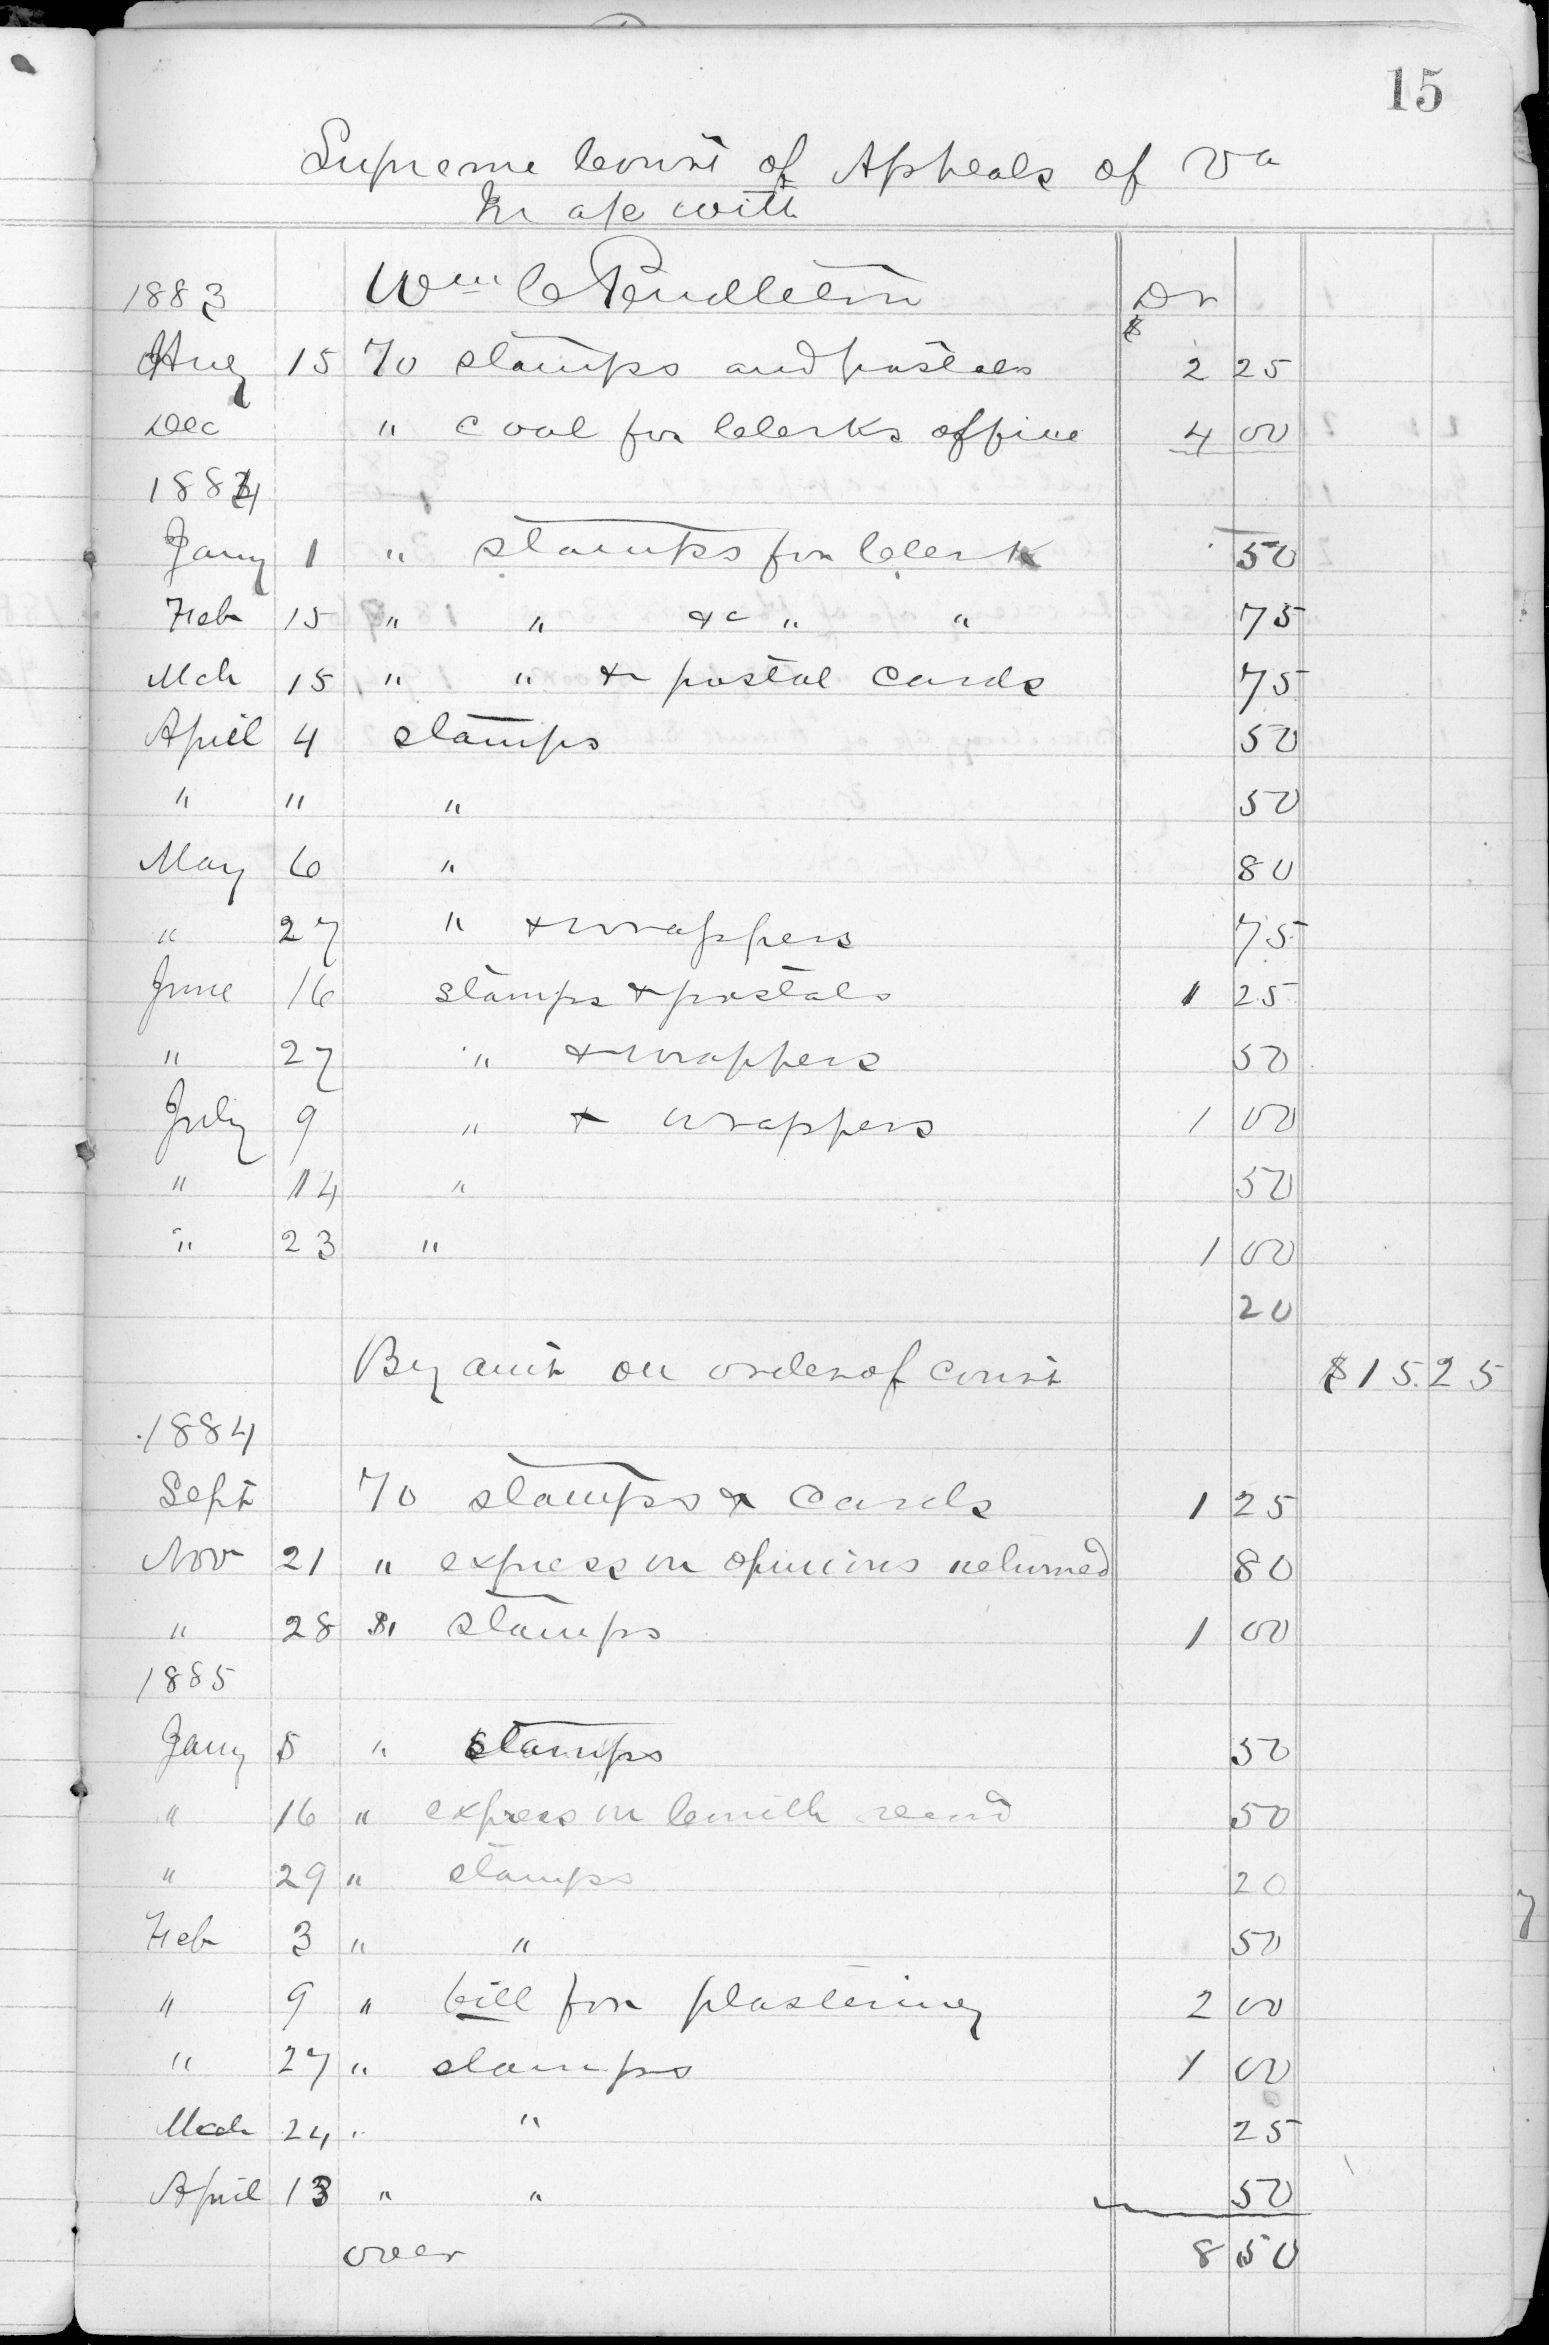 15
Supreme Court of Appeals of Va
In a/c with
1883 Wm C Pendleton Dr
$
Aug 15 To stamps and postals 2 25
Dec " coal for Clerks office 4 00
1884
Jany 1 " stamps for Clerk 50
Feb 15 " " &c " " 75
Mch 15 " " & postal cards 75
April 4 stamps 50
" " " 50
May 6 " 80
" 27 " & wrappers 75
June 16 stamps & postals 1 25
" 27 " & wrappers 50
July 9 " & wrappers 1 00
" 14 " 50
" 23 " 1 00
20
By amt on order of court $15.25
1884
Sept To stamps & cards 1 25
Nov 21 " express on opinions returned 80
" 28 " stamps 1 00
1885
Jany 5 " stamps 50
" 16 " express on record 50
" 29 " stamps 20
Feb 3 " " 50
" 9 " bill for plastering 2 00
" 27 " stamps 1 00
Mch 24 " " 25
April 13 " " 50
over 8 50